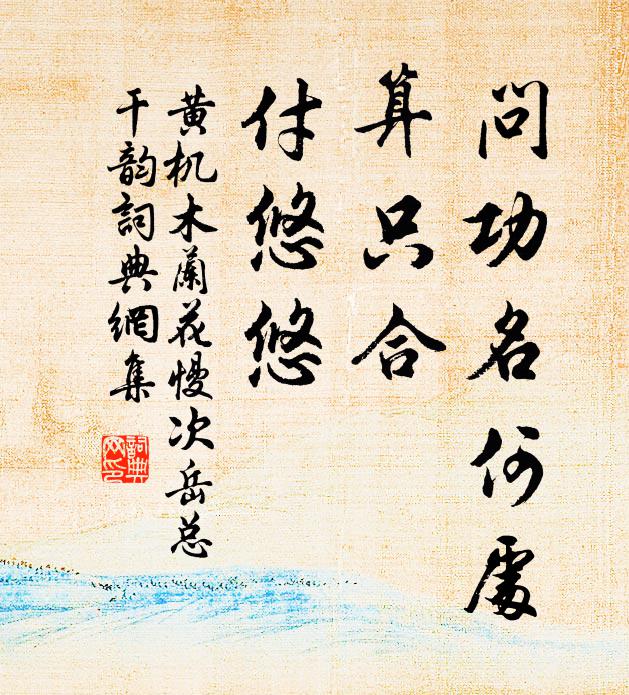 问功名何處
算只合
付悠悠
黄机木蘭花慢次岳总
干韵詞典網集
詞典
网印